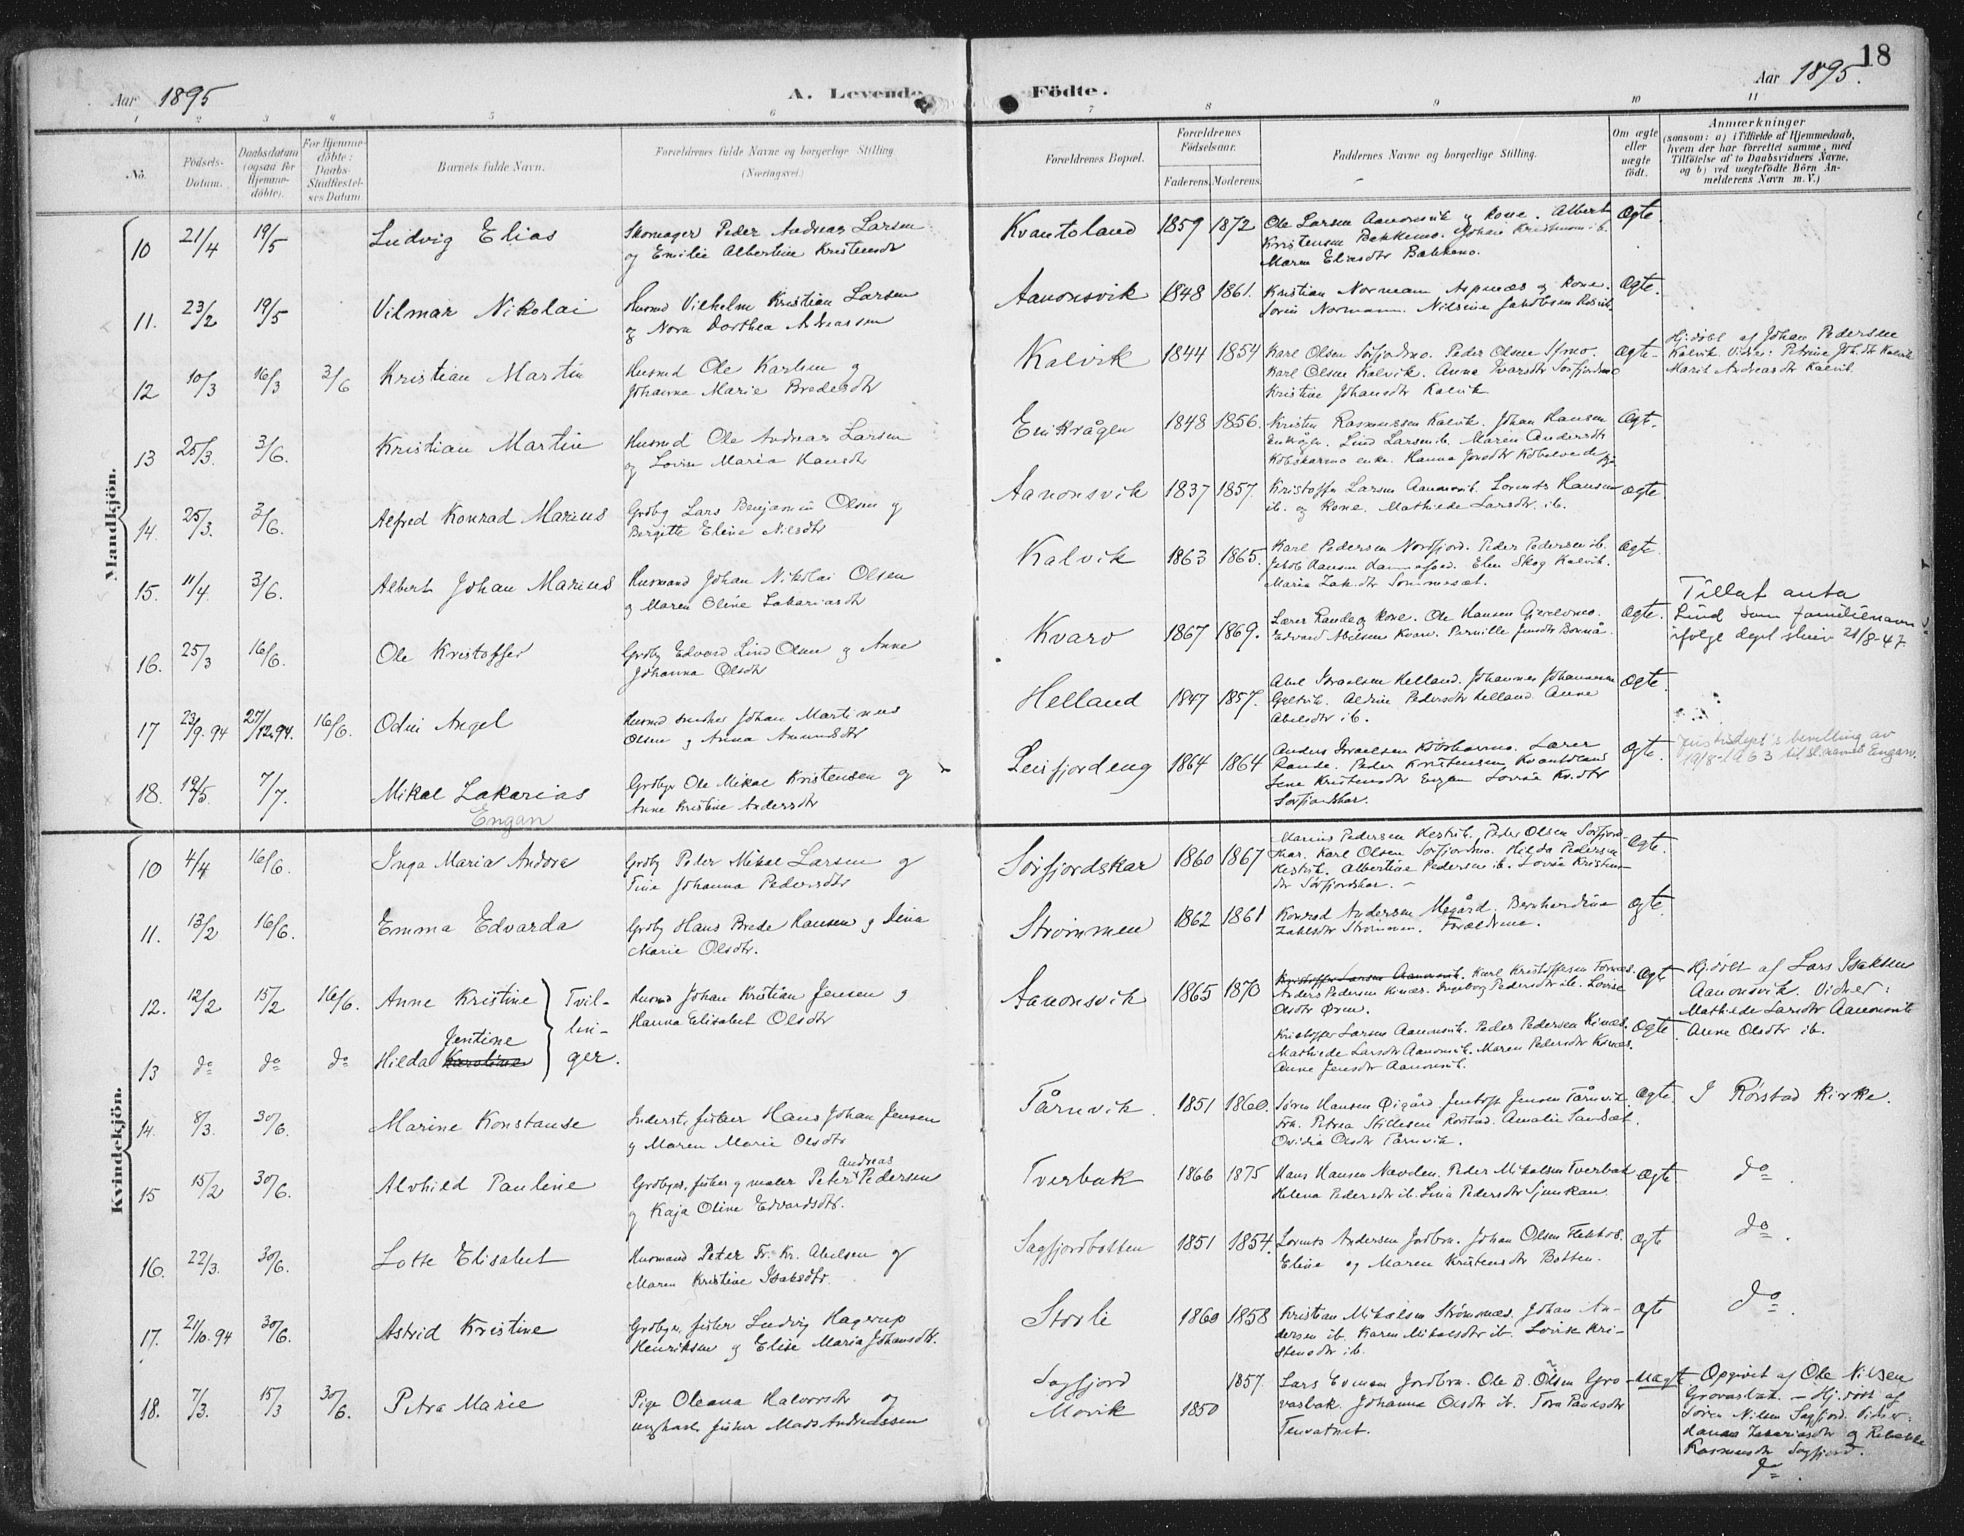 18
Aar 1895
A. Levende Födte.
Aar 1895.
1 2 3 4 5 6 7 8 9 10 11
No.
Födsels-Datum.
Daabsdatum (ogsaa for Hjemmedöbte).
For Hjemmedöbte: Daabs-Stadfæstelses Datum
Barnets fulde Navn.
Forældrenes fulde Navne og borgerlige Stilling (Næringsvei.)
Forældrenes Bopæl.
Forældrenes Födselsaar.
Faderens. Moderens.
Faddernes Navne og borgerlige Stilling.
Om ægte eller uægte født.
Anmærkninger
(saasom: a) i Tilfælde af Hjemmedaab,
hvem der har forrettet samme, med
Tilföielse af to Daabsvidners Navne,
og b) ved uægtefödte Börn An-
melderens Navn m. V.)
Mandkjön.
10 21/4 19/5 Ludvig Elias Skomager Peder Andreas Larsen
og Emilie Albertine Kristensdr
Kvantoland 1859 1872 Ole Larsen Aanonsvik og Kone. Albert
Kristensen Bakkemo. Johan Kristensen ib.
Maren Eliasdtr Bakkemo.
Ægte.
11. 23/2 19/5 Vilmar Nikolai Husmd Vilhelm Kristian Larsen
og Nora Dorthea Andreassen
Aanonsvik 1848 1861. Kristian Normann Aspnæs og Kone.
Sören Normann. Nilsine Jakobsen
Ægte.
12 10/3 16/3 3/6 Kristian Martin Husmd Ole Karlsen og
Johanna Marie Bredesdtr
Kalvik 1844 1854 Karl Olsen Sörfjordmo. Peder Olsen
Karl Olsen Kalvik. Anna Ivarsdtr Sörfjordmo
Kristine Johansdtr Kalvik
Ægte. Hj.döbt af Johan Pedersen
Kalvik. Vidner: Petrine Joh.dtr Kalvik
Marit Andreasdtr Kalvik.
13 25/3. 3/6. Kristian Martin Husmd Ole Andreas Larsen
og Lovise Maria Hansdtr
Enikrågen 1848 1856. Kristen Rasmussen Kalvik. Johan Hansen
Lind Larsen ib. Maren Andersdtr
Kobskarmo enke. Hanna Jonsdtr
Ægt.
14. 25/3. 3/6. Alfred Konrad Marius Grdbg Lars Benjamin Olsen og
Birgitte Eline Nilsdtr
Aanonsvik 1837 1857. Kristoffer Larsen Aanonsvik. Lorents Hansen
ib. og Kone. Mathilde Larsdtr. ib.
Ægte
15. 11/4. 3/6. Albert Johan Marius Husmand Johan Nikolai Olsen
og Maren Oline Zakariasdtr
Kalvik 1863 1865. Karl Pedersen Nordfjord. Peder Pedersen ib.
Jakob Hansen Elen Skog Kalvik.
Maria Zak.dtr Sommerset.
Ægte.
16. 25/3 16/6. Ole Kristoffer Grdbg Edvard Lind Olsen og Anne
Johanna Olsdtr
Kvarv 1867 1869. Lærer Rande og Kone. Ole Hansen Gjerelvmo.
Edvard Nilsen Kvarv. Pernille Jensdtr Bonnå.
Ægte. Tillat anta
Lind som familienavn
ifølge dept skriv 21/8-47.
17 23/9.94 27/12.94. 16/6. Odin Angel Husmd smed Johan Martinus
Olsen og Anna Amundsdtr
Helland 1847 1857. Abel Israelsen Helland. Johannes Johannesen
Aldrine Pedersdtr Helland. Anne
Abelsdtr ib.
Ægte.
18. 12/5. 7/7. Mikal Zakarias
Engan
Grdbgr Ole Mikal Kristensen og
Anne Kristine Andersdtr
Leirfjordeng 1864 1864 Anders Israelsen Kobskarmo. Lærer
Rande. Peder Kristensen Kvantoland
Jens Kristensdtr Engan Lovise Kr.dtr
Sörfjordskar.
Ægte. Justisdept's bevilling av
19/8-1963 til sl.navnet Engan.
Kvindekjön.
10 4/4 16/6. Inga Maria Andora Grdbg Peder Mikal Larsen og
Tina Johanna Pedersdtr
Sörfjordskar 1860 1867 Marius Pedersen Hestvik. Peder Olsen Sörfjord-
skar. Karl Olsen Sörfjordmo. Hilda Pedersen
Hestvik. Albertine Pedersen ib. Lovise Kristens-
dtr Sörfjordskar. –
Ægte.
11. 13/2 16/6. Emma Edvarda Grdbg Hans Brede Hansen og Lina
Marie Olsdtr.
Strömmen 1862 1861 Konrad Andersen Megård. Bernhardina
Zakl.sdtr Strömmen. Forældrene.
Ægte.
12. 12/2 15/2 16/6. Anne Kristine Tvil-
lin-
ger.
Husmd Johan Kristian Jensen og
Hanna Elisabet Olsdtr
Aanonsvik 1865 1870 Kristoffer Larsen Aanonsvik. Karl Kristoffersen Tornes.
Anders Pedersen Kines. Ingeborg Pedersdtr ib. Lovise
Olsdtr Ören.
Ægte Hj.döbt af Lars Isaksen
Aanonsvik. Vidner:
Mathilde Larsdtr Aanonsvik
Anne Olsdtr ib.
13 do do do Hilda Jentine Karoline
Kristoffer Larsen Aanonsvik. Peder Pedersen Kines.
Mathilde Larsdtr Aanonsvik. Maren Pedersdtr Kines.
Anne Jensdtr Aanonsvik.
Ægte.
14. 8/3. 30/6. Marine Konstanse Inderst, fisker Hans Johan Jensen
og Maren Marie Olsdtr
Tårnvik. 1851 1860. Sören Hansen Öigård. Jentoft Jensen Tårnvik.
Frk. Petrea Stillesen Rörstad. Amalie Sandsæt.
Ovidia Olsdtr Tårnvik.
Ægte. I Rörstad Kirke.
15 15/2 30/6. Alvhild Pauline Grdbger, fisker og maler Peter Andreas Pedersen
og Kaja Oline Edvardsdtr.
Tverbak 1866 1875 Hans Hansen Nævden. Peder Mikalsen Tverbak
Helena Pedersdtr ib. Lina Pedersdtr Sjunskan.
Ægte do.
16. 22/3. 30/6. Lotte Elisabet Husmand Peter Fr. Kr. Abelsen og
Maren Kristine Isaksdtr.
Sagfjordbotten 1851 1854. Lorents Andersen Jordbru. Johan Olsen
Eline og Maren Kristensdtr Botten.
Ægte do.
17. 21/10.94 30/6. Astrid Kristine Grdbger, fisker Ludvig Hagerup
Henriksen og Elise Maria Johansdtr.
Storli 1860 1858 Kristian Mikalsen Strömsnæs. Johan An-
dersen ib. Karen Mikalsdtr ib. Lovise Kri-
stensdtr ib.
Ægte do.
18. 7/3. 15/3 30/6. Petra Marie Pige Oleana Halvorsdtr og
ungkarl, fisker Mads Andreassen
Sagfjord
Movik
1850 1857. Lars Evensen Jordbru. Ole B. Olsen Gro-
vasbak. Johanna Olsdtr ib. Tora Paulsdtr
Tenvatnet.
Uægte. Opgivet af Ole Nilsen
Grovasbak. – Hj.döbt af
Sören Nilsen Sagfjord. Vidner:
Hanna Zakariasdtr og Rebekka
Rasmusdtr Sagfjord.
do.